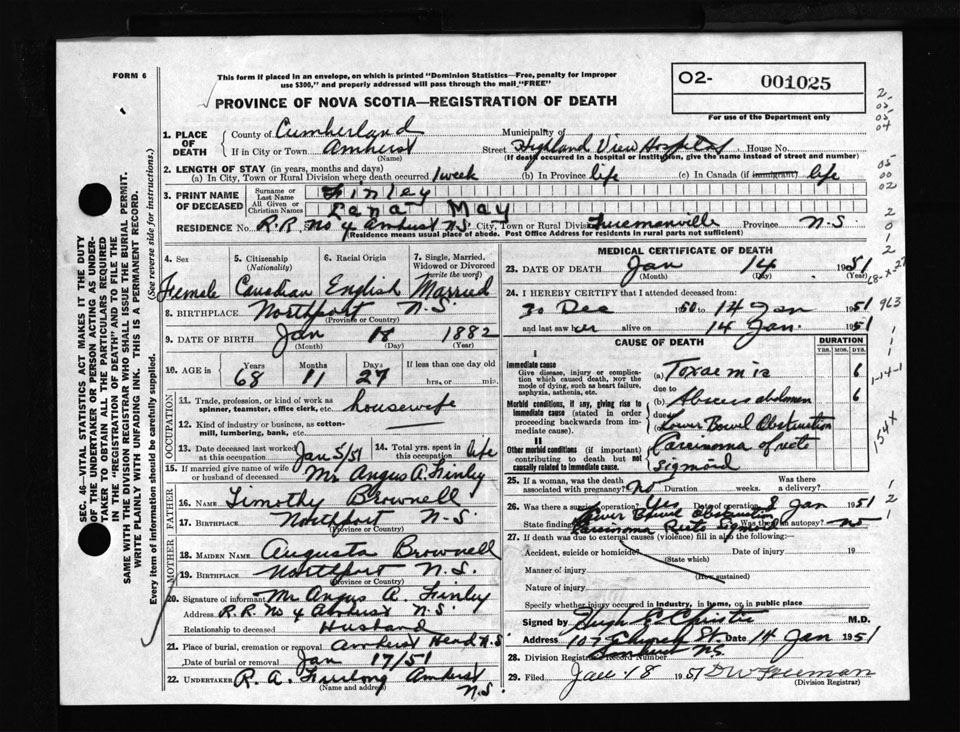 FORM 6
This form if placed in an envelope, on which is printed "Dominion Statistics—Free, penalty for improper
use $300," and properly addressed will pass through the mail "FREE"
O2- 001025
For use of the Department only
PROVINCE OF NOVA SCOTIA—REGISTRATION OF DEATH
1. PLACE OF DEATH
County of Cumberland Municipality of
If in City or Town Amherst Street Highland View Hospital House No.
(Name) (If death occurred in a hospital or institution, give the name instead of street and number)
2. LENGTH OF STAY (in years, months and days)
(a) In City, Town or Rural Division where death occurred 1 week (b) In Province life (c) In Canada (if immigrant) life
3. PRINT NAME OF DECEASED
Surname or Last Name Finley
All Given or Christian Names Lana May
RESIDENCE No. R.R. No 4 Amherst N.S. City, Town or Rural Division Truemanville Province N.S.
(Residence means usual place of abode. Post Office Address for residents in rural parts not sufficient)
4. Sex 5. Citizenship (Nationality) 6. Racial Origin 7. Single, Married, Widowed or Divorced (write the word)
Female Canadian English Married
8. BIRTHPLACE Northport N.S.
(Province or Country)
9. DATE OF BIRTH Jan 18 1882
(Month) (Day) (Year)
10. AGE in Years Months Days If less than one day old
68 11 27 hrs. or min.
OCCUPATION
11. Trade, profession, or kind of work as spinner, teamster, office clerk, etc. housewife
12. Kind of industry or business, as cotton-mill, lumbering, bank, etc.
13. Date deceased last worked at this occupation Jan 5/51 14. Total yrs. spent in this occupation life
15. If married give name of wife or husband of deceased Mr Angus A. Finley
FATHER
16. NAME Timothy Brownell
17. BIRTHPLACE Northport N.S.
(Province or Country)
MOTHER
18. MAIDEN NAME Augusta Brownell
19. BIRTHPLACE Northport N.S.
(Province or Country)
20. Signature of informant Mr Angus A. Finley
Address R.R. No 4 Amherst N.S.
Relationship to deceased Husband
21. Place of burial, cremation or removal Amherst Head N.S
Date of burial or removal Jan 17/51
22. UNDERTAKER R. A. Furlong Amherst N.S.
(Name and address)
MEDICAL CERTIFICATE OF DEATH
23. DATE OF DEATH Jan 14 1951
(Month) (Day) (Year)
24. I HEREBY CERTIFY that I attended deceased from
30 Dec 1950 to 14 Jan 1951
and last saw her alive on 14 Jan. 1951
CAUSE OF DEATH DURATION
YRS. MOS. DYS.
I
Immediate cause
Give disease, injury or complication which caused death, NOT the mode of dying, such as heart failure, asphyxia, asthenia, etc.
(a) Toxaemia 6
due to
Morbid conditions, if any, giving rise to immediate cause (stated in order proceeding backwards from immediate cause).
(b) Abscess abdomen 6
due to
(c) Lower Bowel Obstruction
II
Other morbid conditions (if important) contributing to death but not causally related to immediate cause.
Carcinoma of recto
sigmoid
25. If a woman, was the death associated with pregnancy? no Duration weeks. Was there a delivery?
26. Was there a surgical operation? Yes Date of operation 8 Jan 1951
State findings Lower Bowel Obstruction
Carcinoma Recto Sigmoid Was there an autopsy? no
27. If death was due to external causes (violence) fill in also the following:—
Accident, suicide or homicide? Date of injury 19
(State which)
Manner of injury
(How sustained)
Nature of injury
Specify whether injury occurred in industry, in home, or in public place
Signed by Hugh E Christie M.D.
Address 107 Church St. Date 14 Jan 1951
Amherst N.S.
28. Division Registrar's Record Number
29. Filed Jan 18 1951 D W Freeman
(Division Registrar)
SEC. 46—VITAL STATISTICS ACT MAKES IT THE DUTY
OF THE UNDERTAKER OR PERSON ACTING AS UNDER-
TAKER TO OBTAIN ALL THE PARTICULARS REQUIRED
IN THE "REGISTRATION OF DEATH" AND TO FILE THE
SAME WITH THE DIVISION REGISTRAR WHO SHALL ISSUE THE BURIAL PERMIT.
WRITE PLAINLY WITH UNFADING INK. THIS IS A PERMANENT RECORD.
Every item of information should be carefully supplied. (See reverse side for instructions.)
2-
05-
04
05
00
02
2
0
1
2
68-X-27
963
1
1
1-14-1
154X
1 2
1